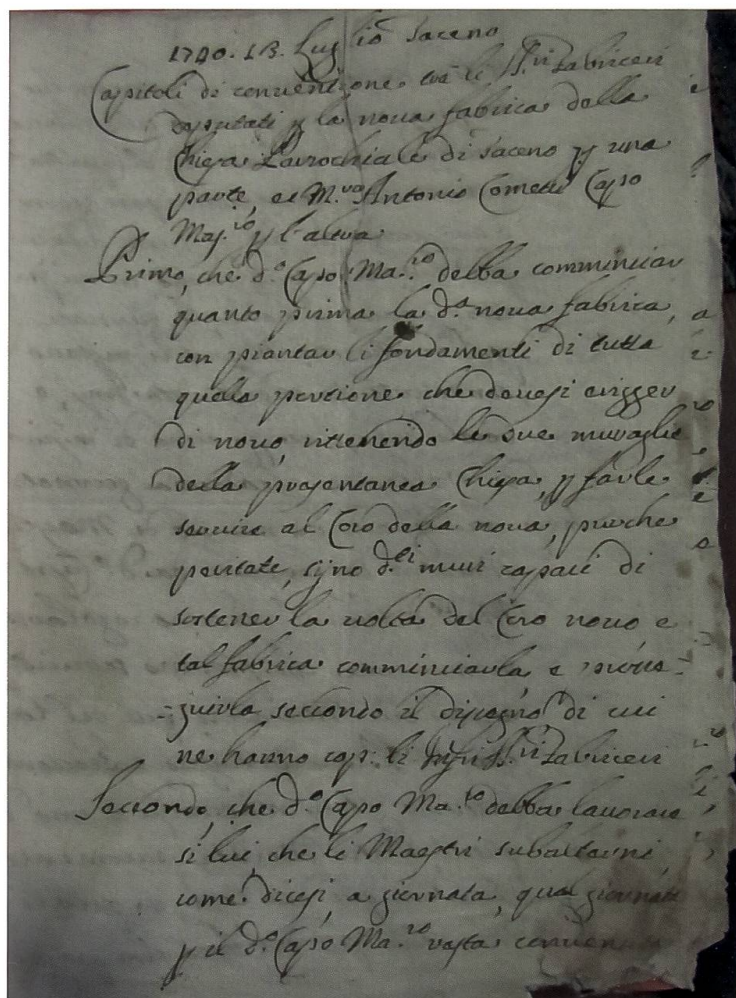 1740. 13. Luglio Saceno
Capitoli di conventione tra li SS.ri Fabriceri
deputati p la nova fabrica della
Chiesa Parrochiale di Saceno p una
parte, et M.ro Antonio Cometti Capo
Mas.ro p l'altra
Primo, che d.o Capo Ma.ro debba comminciar
quanto prima la d.a nova fabrica,
con piantar li fondamenti di tutta
quela portione che devesi erigger
di novo, ritenendo le due muraglie
della presentanea Chiesa, p farle
servire al Coro della nova, purche
peritate, sijno d.ti muri capaci di
sostener la volta del Coro novo, e
tal fabrica comminciarla e prose-
=guirla secondo il disegno di cui
ne hanno cop: li SS.ri Fabriceri
Secondo, che d.o Capo Ma.ro debba lavorare
si lui che li Maestri subalterni,
come dicesi a giornata, qual giornata
p il d.o Capo Ma.ro resta